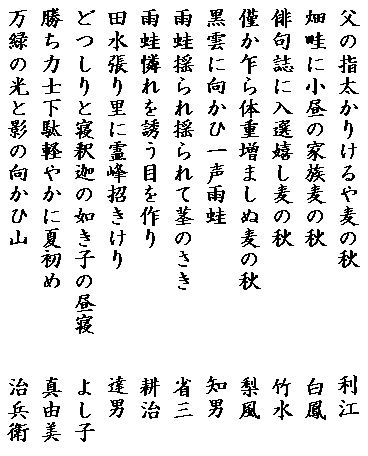 父の指太かりけるや麦の秋　利江
畑畦に小昼の家族麦の秋　白鳳
俳句誌に入選嬉し麦の秋　竹水
僅か乍ら体重増ましぬ麦の秋　梨風
黒雲に向かひ一声雨蛙　知男
雨蛙揺られ揺られて茎のさき　省三
雨蛙憐れを誘う目を作り　耕治
田水張り里に霊峰招きけり　達男
どつしりと寝釈迦の如き子の昼寝　よし子
勝ち力士下駄軽やかに夏初め　真由美
万緑の光と影の向かひ山　治兵衛